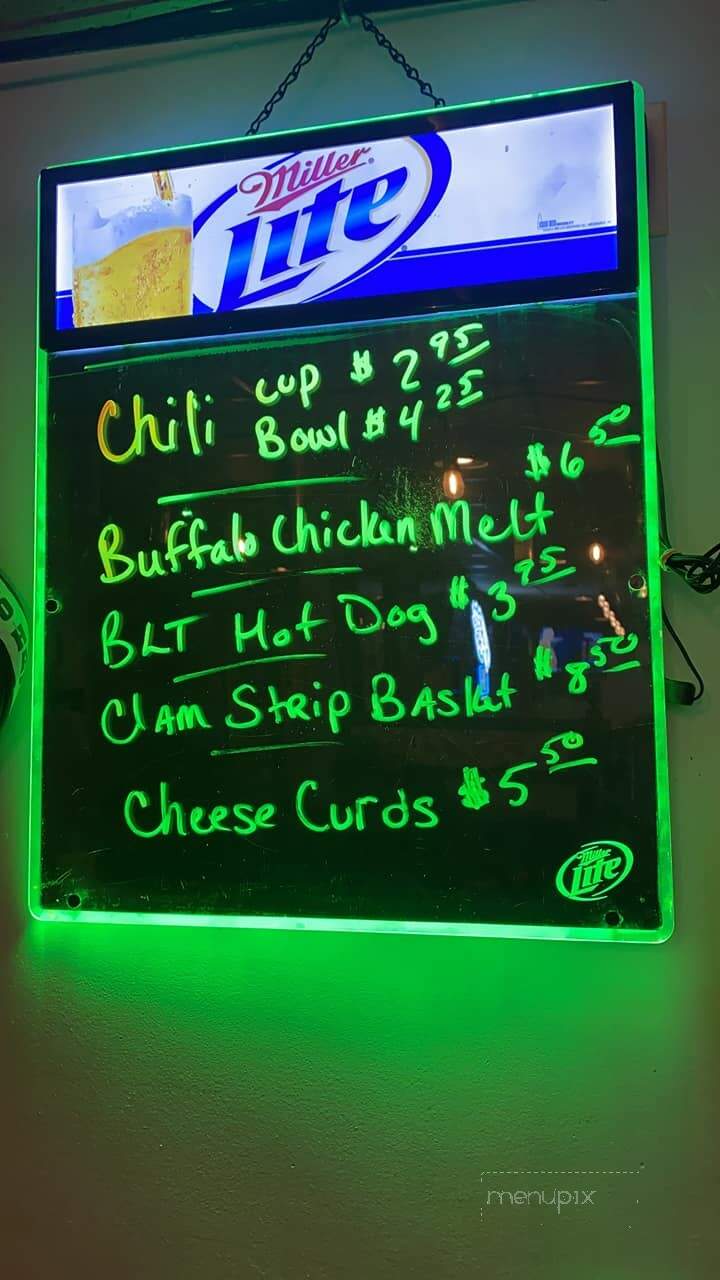 Miller
Lite
Chili cup $ 2 95
Bowl $ 4 25
$6 50
Buffalo Chicken Melt
BLT Hot Dog $ 3 95
Clam Strip Basket $ 8 50
Cheese Curds $5 50
Miller
Lite
menupix